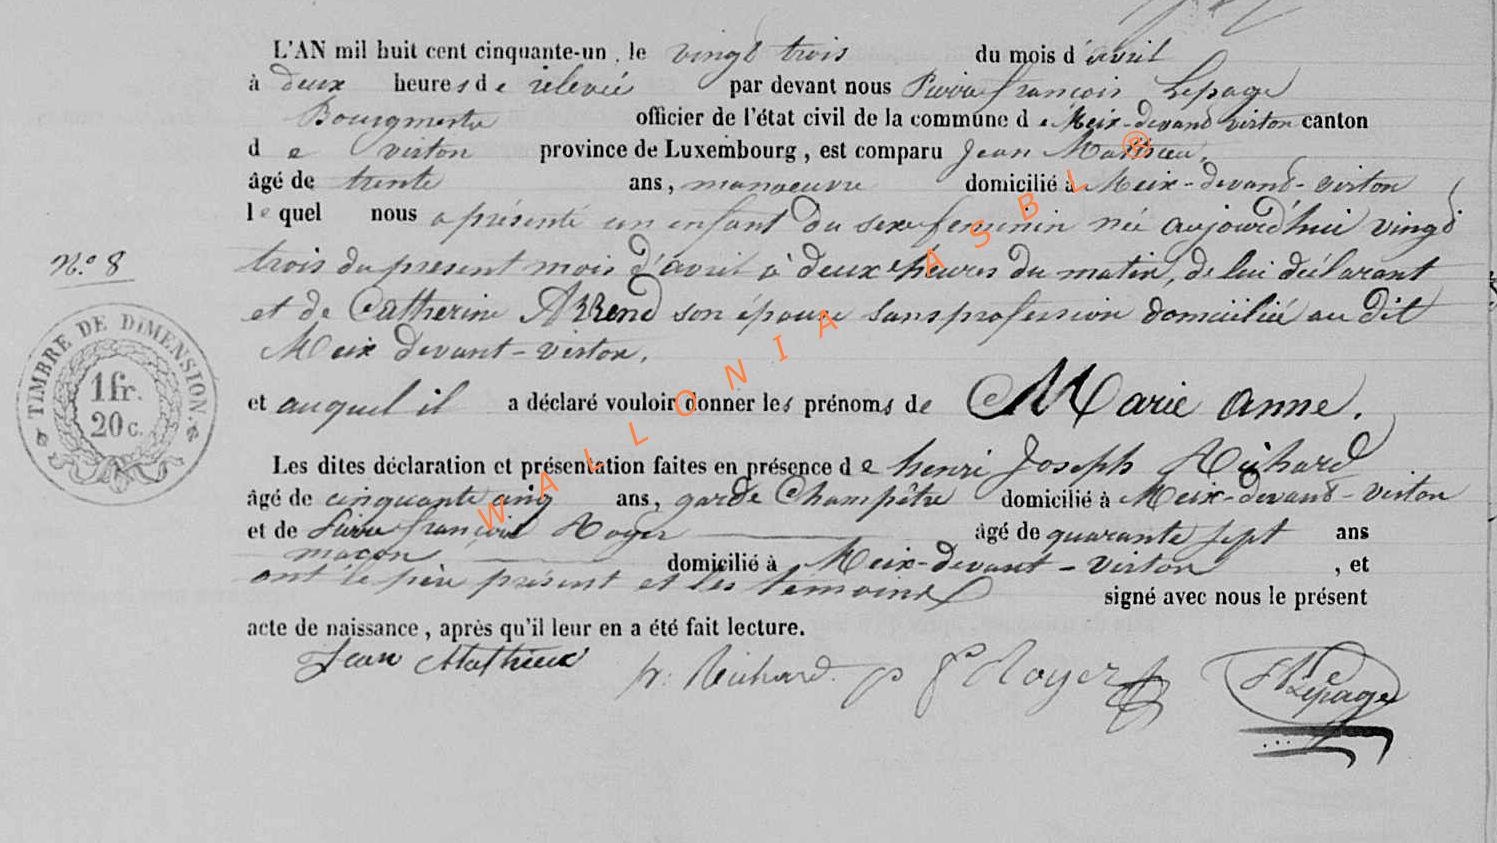 L'AN mil huit cent cinquante-un, le vingt trois du mois d'avril
à deux heures de relevée par devant nous Pierre françois Lepage
Bourgmestre officier de l'état civil de la commune de Meix-devant virton canton
de virton province de Luxembourg, est comparu Jean Mathieu,
âgé de trente ans, manoeuvre domicilié à Meix-devant-virton
lequel nous a présenté un enfant du sexe feminin née aujourd'hui vingt
N.° 8
trois du present mois d'avril à deux heures du matin, de lui déclarant
et de Catherine Arrend son épouse sans profession domiciliée au dit
Meix devant-virton,
TIMBRE DE DIMENSION.
1 fr.
20 c.
et auquel il a déclaré vouloir donner les prénoms de Marie anne.
Les dites déclaration et présentation faites en présence de henri Joseph Richard
âgé de cinquante cinq ans, garde Champêtre domicilié à Meix-devant-virton
et de Pierre françois Royer âgé de quarante sept ans
maçon domicilié à Meix-devant-virton, et
ont le père présent et les témoins signé avec nous le présent
acte de naissance, après qu'il leur en a été fait lecture.
Jean Mathieu Richard. Royer Lepage
WALLONIA ASBL ®